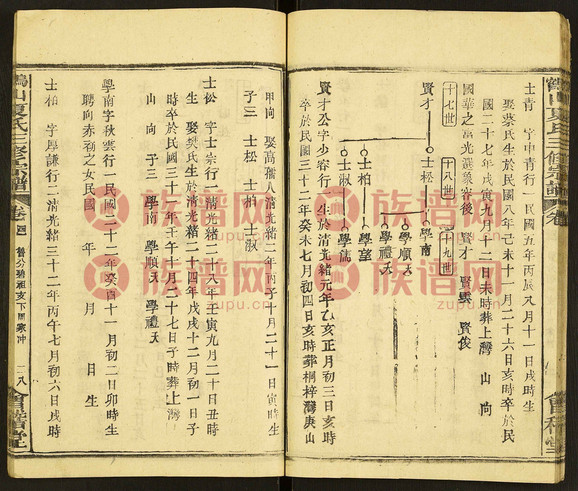 士青 字中青行一民國五年丙辰八月十一日戌時生
娶蔡氏生於民國八年己未十一月二十六日亥時卒於民
國二十七年戊寅九月十二日未時葬上灣 山 向
國華之富光選象容後 賢才 賢熙 賢俊
十七世
十八世
十九世
賢才
士松
學南
學順天
學禮天
士柏
學望
士淑
學滿
賢才公字少容行一生於清光緒元年乙亥正月初三日亥時
卒於民國三十二年癸未七月初四日亥時葬桐梓灣庚山
甲向 娶高獳人清光緒二年丙子十月二十一日寅時生
子三 士松 士柏 士淑
士松 字士宗行一清光緒二十八年壬寅九月二十日丑時
生 娶樊氏生於清光緒二十四年戊戌十二月初一日子
時卒於民國三十一年壬午十月二十七日子時葬上灣
山 向 子三 學南 學順天 學禮天
學南字秋雲行一民國二十二年癸酉十一月初二日卯時生
聘向赤初之女民國 年 月 日生
士柏 字厚謙行二清光緒三十二年丙午七月初六日戌時
鶴山夏氏三修宗譜 卷
鶴山夏氏三修宗譜 卷四
二八
會稽堂
族谱网
zupu.cn